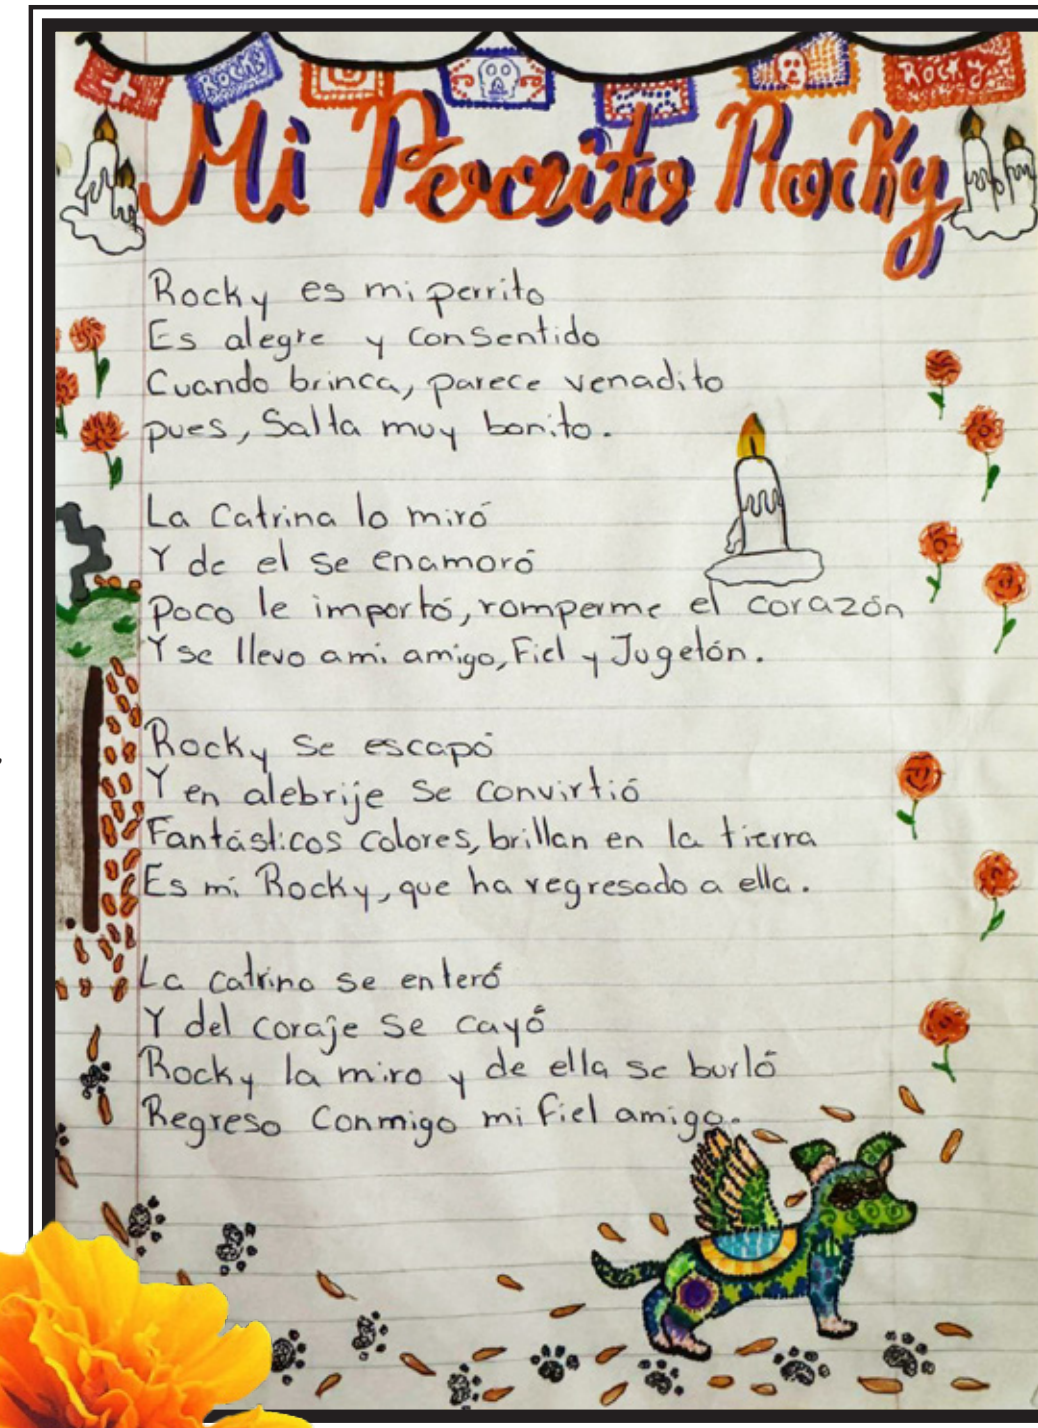 ROCKY
Rocky
Mi Perrito Rocky
Rocky es mi perrito
Es alegre y consentido
Cuando brinca, parece venadito
pues, Salta muy bonito.
La Catrina lo miró
Y de el se enamoró
Poco le importó, romperme el corazón
Y se llevo ami amigo, Fiel y Jugetón.
Rocky se escapó
Y en alebrije se convirtió
Fantásticos colores, brillan en la tierra
Es mi Rocky, que ha regresado a ella.
La catrina se enteró
Y del coraje se cayó
Rocky la miro y de ella se burló
Regreso Conmigo mi fiel amigo.